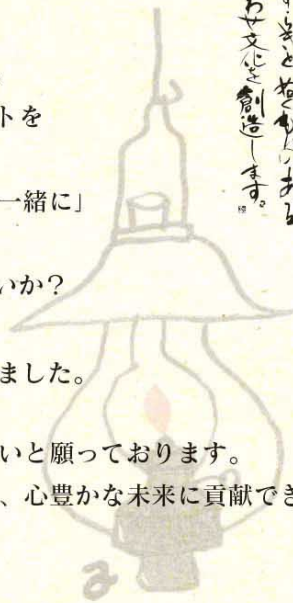 とぬくもりのある
わせ文化を創造します。
トを
一緒に」
いか？
ました。
いと願っております。
、心豊かな未来に貢献でき